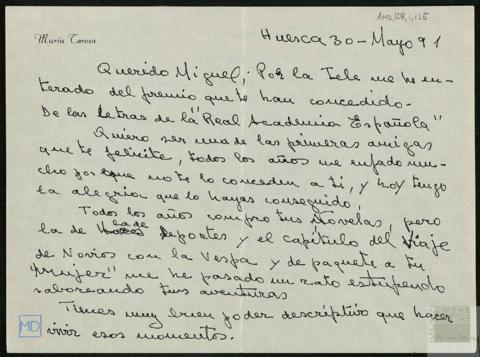 AMD,108,1,135
Maria Teresa
Huesca 30-Mayo 91
Querido Miguel; Por la Tele me he en-
terado del premio que te han concedido.
De las Letras de la "Real Academia Española"
Quiero ser una de las primeras amigas
que te felicite, todos los años me enfado mu-
cho por que no te lo conceden a ti, y hoy tengo
la alegria que lo hayas conseguido,
Todos los años compro tus Novelas, pero
la de la de deportes y el capítulo del Viaje
de Novios con la Vespa y de paquete a tu
"Mujer" me he pasado un rato estupendo
saboreando tus aventuras
Tienes muy buen poder descriptivo que hacer
vivir esos momentos.
MD